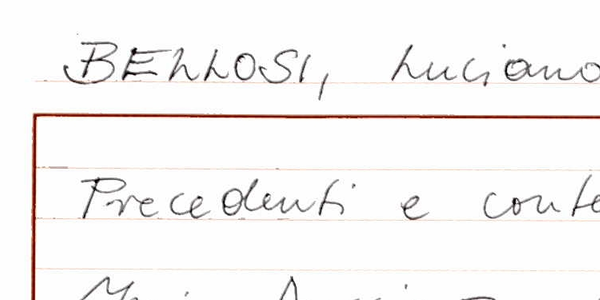 BELLOSI, Luciano
Precedenti e conte